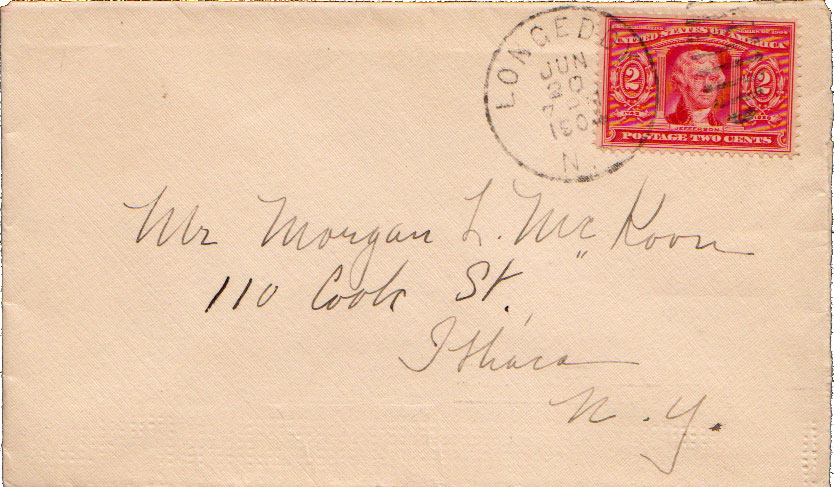 LONGEDDY
JUN
30
N.
UNITED STATES OF AMERICA
2 2
JEFFERSON
POSTAGE TWO CENTS
Mr Morgan L. Mc Koon
110 Cook St.
Ithaca
N. Y.